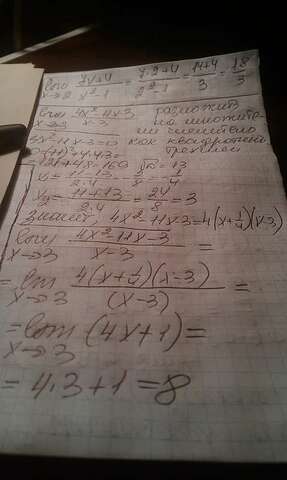 lim x→2 7x+4 / x²-1 = 7·2+4 / 2²-1 = 14+4 / 3 = 18 / 3
lim x→3 4x²-11x-3 / x-3 разложив
на множите-
ли числитель
как квадратный
трехчлен
4x²-11x-3=0
D=(-11)²+4·4·3=
=121+48=169 √D=13
x₁= 11-13 / 2·4 = -2/8 = -1/4
x₂= 11+13 / 2·4 = 24 / 8 = 3
Значит, 4x²-11x-3=4(x+1/4)(x-3)
lim x→3 4x²-11x-3 / x-3 =
= lim x→3 4(x+1/4)(x-3) / (x-3) =
= lim x→3 (4x+1)=
= 4·3+1=8